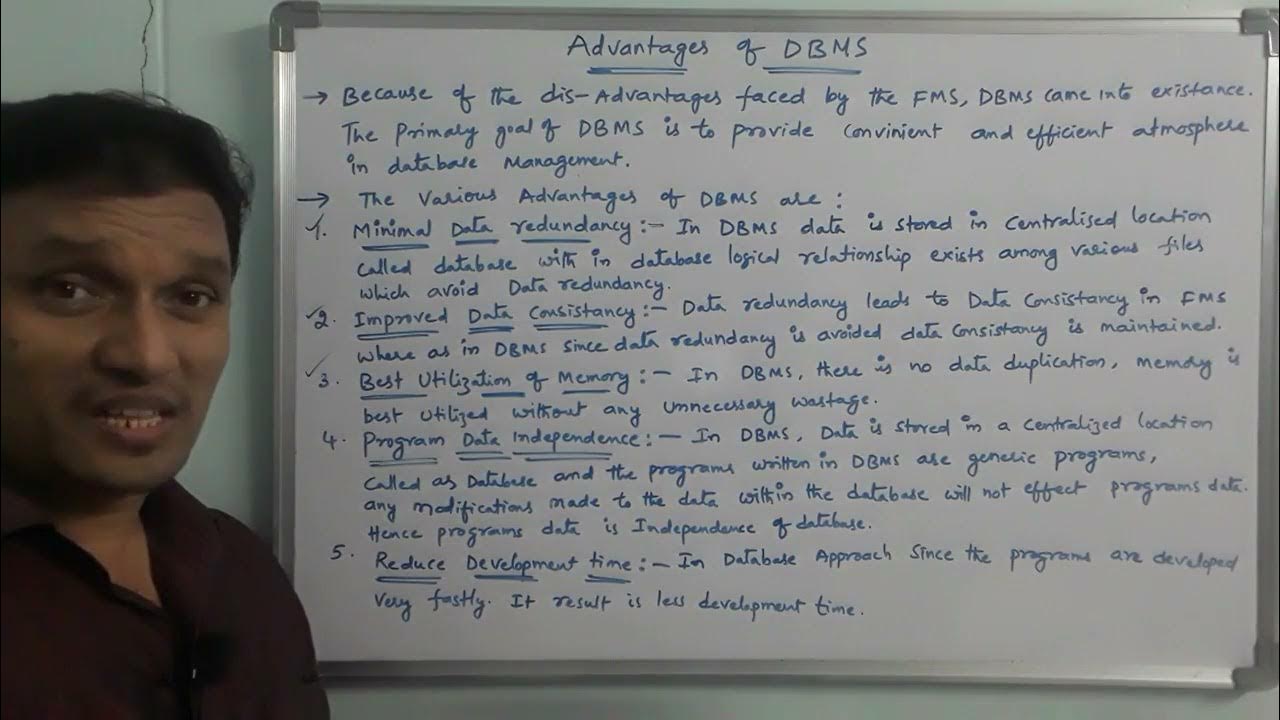 Advantages of DBMS
→ Because of the dis-Advantages faced by the FMS, DBMS came into existance.
The Primary goal of DBMS is to provide convinient and efficient atmosphere
in database Management.
→ The Various Advantages of DBMS are :
1. Minimal Data redundancy :- In DBMS data is stored in Centralised location
called database with in database logical relationship exists among various files
which avoid Data redundancy.
2. Improved Data Consistancy :- Data redundancy leads to Data Consistancy in FMS
where as in DBMS since data redundancy is avoided data Consistancy is maintained.
3. Best Utilization of Memory :- In DBMS, there is no data duplication, memory is
best utilized without any unnecessary wastage.
4. Program Data Independence :- In DBMS, Data is stored in a centralized location
Called as Database and the programs written in DBMS are generic programs,
any modifications made to the data within the database will not effect programs data.
Hence programs data is Independence of database.
5. Reduce Development time :- In Database Approach Since the programs are developed
very fastly. It result is less development time.